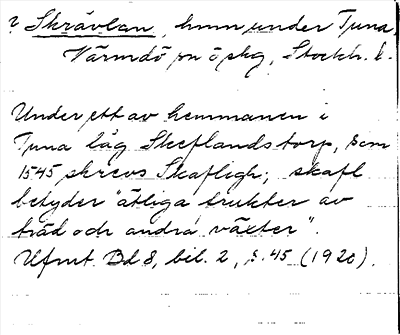 ? Skrävlan, hmn under Tuna,
Värmdö sn ö skg, Stockh. l.
Under ett av hemmanen i
Tuna låg Skeflandstorp, som
1545 skrevs Skafligh; skafl
betyder "ätliga frukter av
träd och andra växter".
Ufmt. Bd 8, bil. 2, s. 45 (1920).